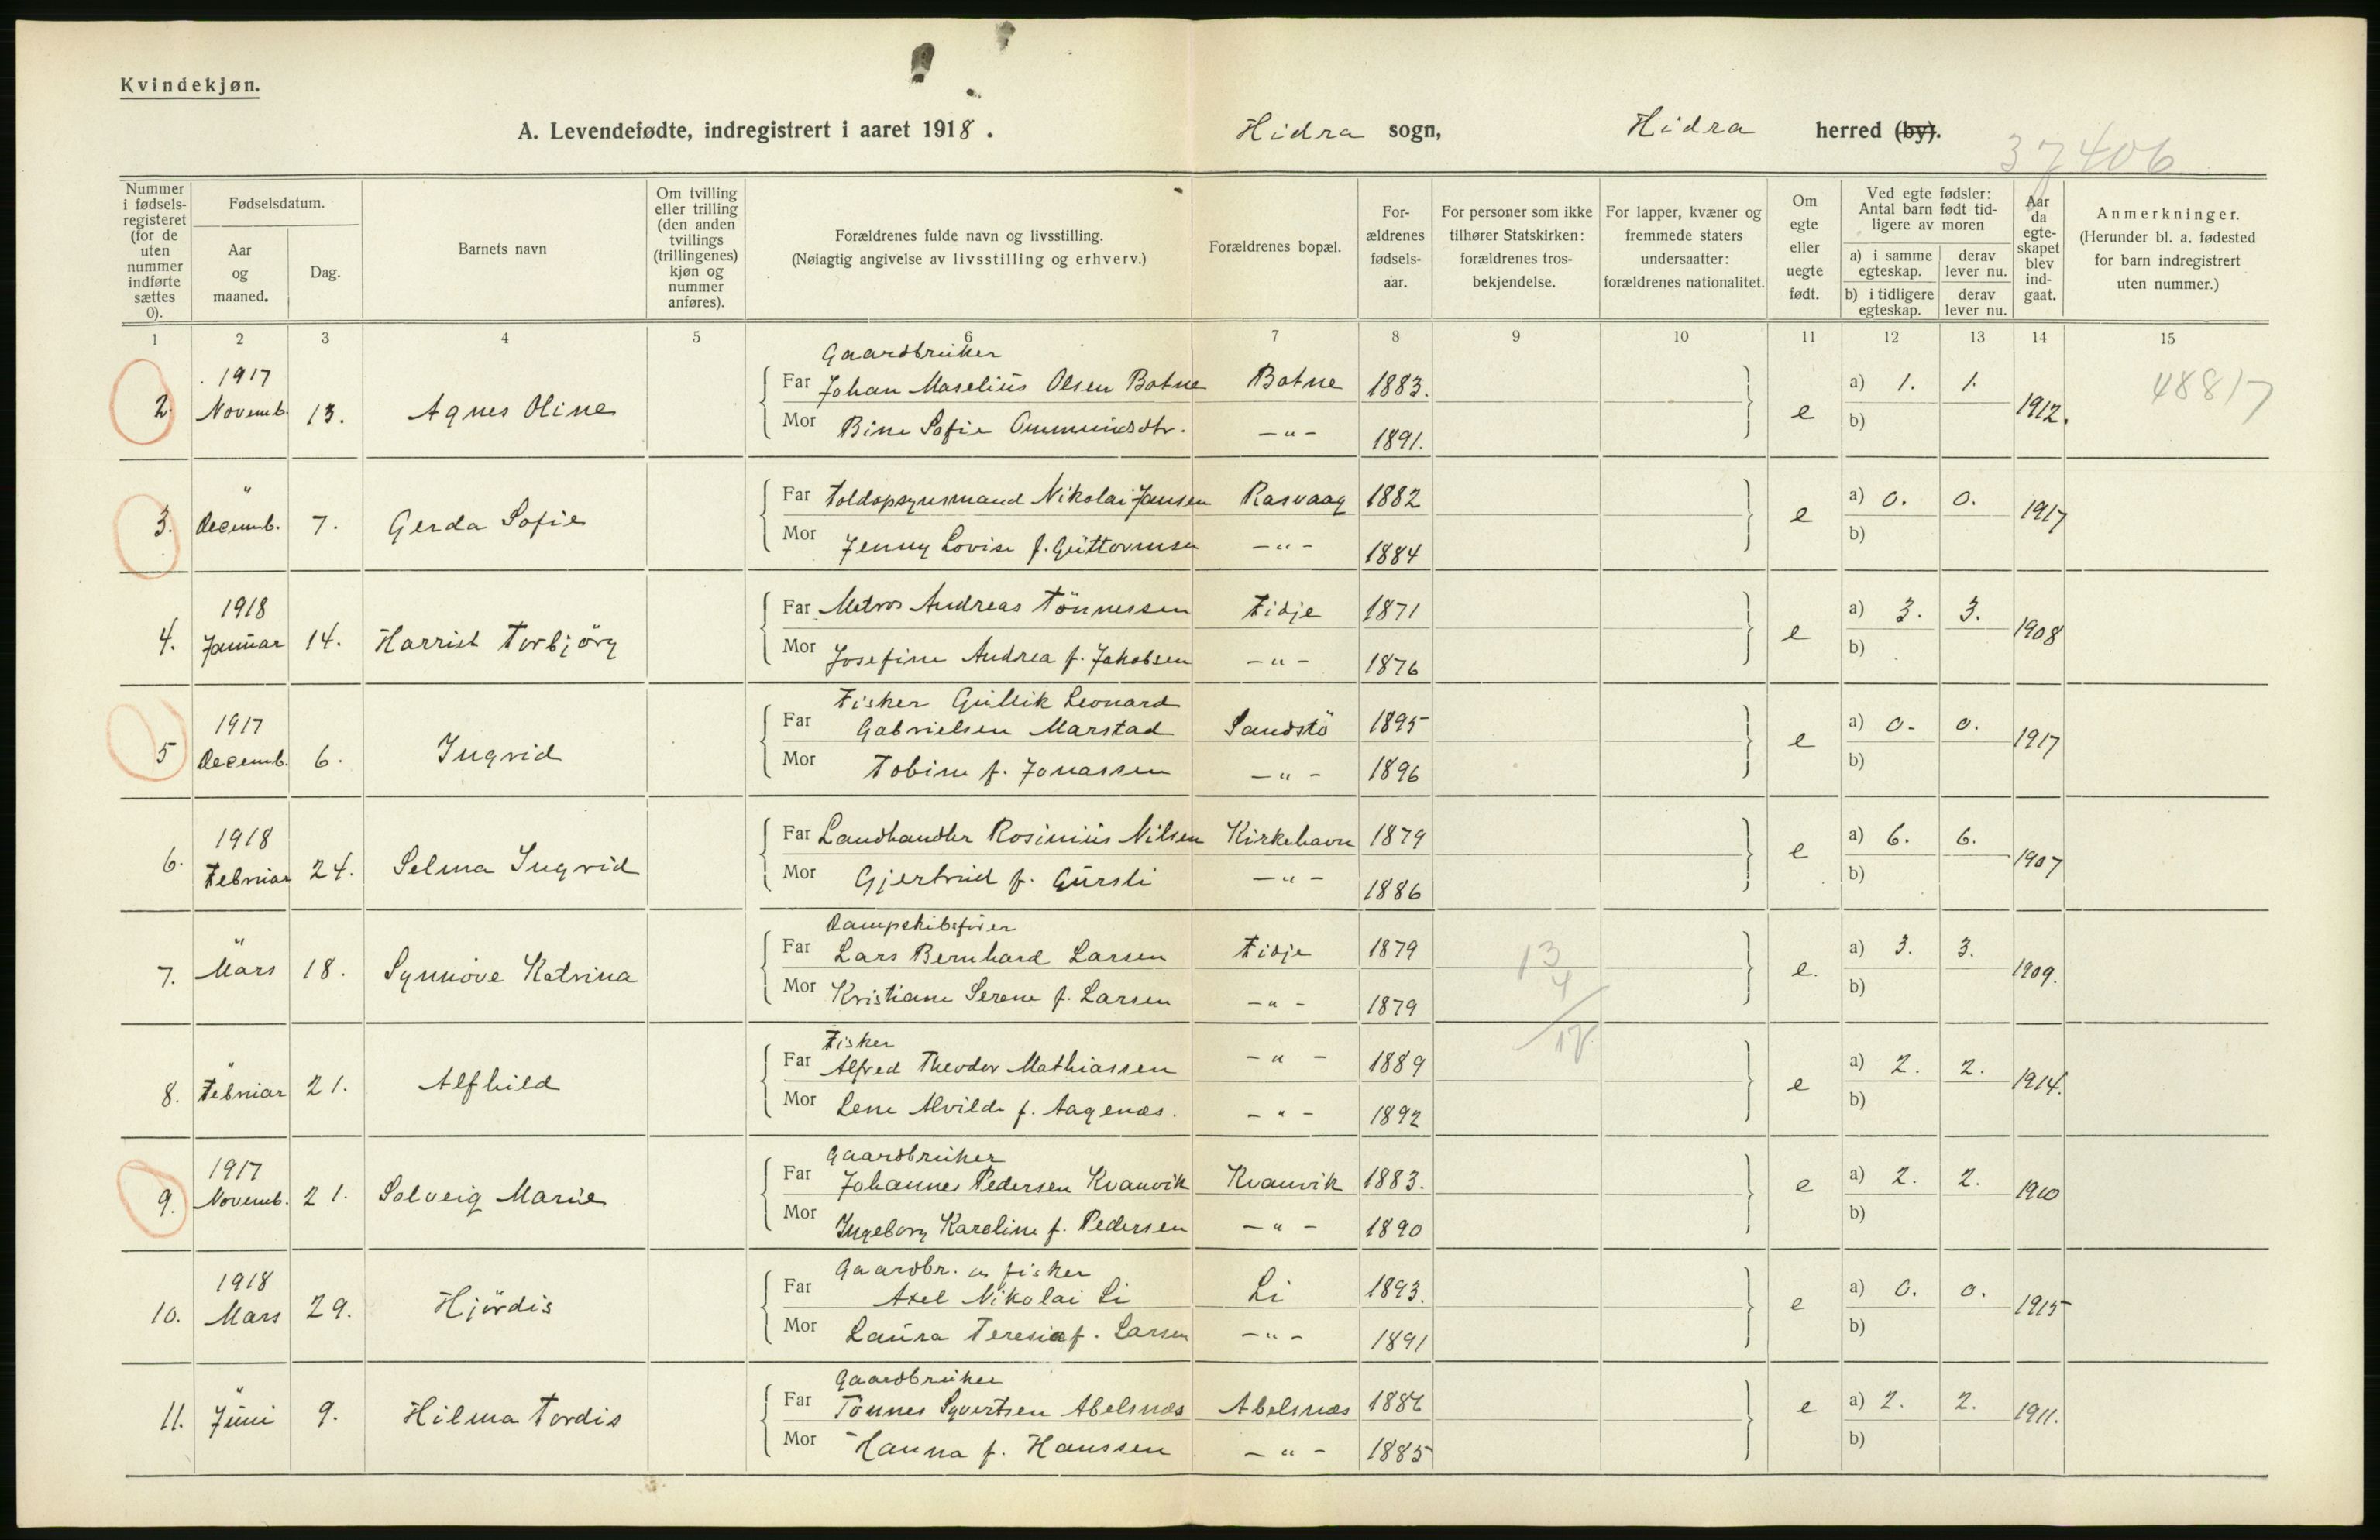 Kvindekjøn.
A. Levendefødte, indregistrert i aaret 1918. Hidra sogn, Hidra herred (by).
37406
Nummer i fødselsregisteret (for de uten nummer indførte sættes 0).
Fødselsdatum.
Aar og maaned.
Dag.
Barnets navn
Om tvilling eller trilling (den anden tvillings (trillingenes) kjøn og nummer anføres).
Forældrenes fulde navn og livsstilling.
(Nøiagtig angivelse av livsstilling og erhverv.)
Forældrenes bopæl.
Forældrenes fødselsaar.
For personer som ikke tilhører Statskirken: forældrenes trosbekjendelse.
For lapper, kvæner og fremmede staters undersaatter: forældrenes nationalitet.
Om egte eller uegte født.
Ved egte fødsler: Antal barn født tidligere av moren
a) i samme egteskap. derav lever nu.
b) i tidligere egteskap. derav lever nu.
Aar da egteskapet blev indgaat.
Anmerkninger.
(Herunder bl. a. fødested for barn indregistrert uten nummer.)
1 2 3 4 5 6 7 8 9 10 11 12 13 14 15
Gaardbruker
2. 1917 Novemb. 13. Agnes Oline Far Johan Maselius Olsen Botne Botne 1883. e a) 1. 1. 1912. 48817
Mor Bine Sofie Ommundsdtr. —"— 1891. b)
3. " Decemb. 7. Gerda Sofie Far Toldopsynsmand Nikolai Jansen Rasvaag 1882 e a) 0. 0. 1917
Mor Jenny Lovise f. Guttormsen —"— 1884 b)
4. 1918 Januar 14. Harriet Torbjörg Far Matros Andreas Tönnessen Fidje 1871 e a) 3. 3. 1908
Mor Josefine Andrea f. Jakobsen —"— 1876 b)
Fisker Gullik Leonard
5 1917 Decemb. 6. Ingrid Far Gabrielsen Marstad Sandstö 1895 e a) 0. 0. 1917
Mor Tobine f. Jonassen —"— 1896 b)
6. 1918 Februar 24. Selma Ingrid Far Landhandler Rosinius Nilsen Kirkehavn 1879 e a) 6. 6. 1907
Mor Gjertrud f. Gursli —"— 1886 b)
Dampskibsfører
7. " Mars 18. Synnöve Katrina Far Lars Bernhard Larsen Fidje 1879 13/4 18 e. a) 3. 3. 1909.
Mor Kristiane Serene f. Larsen —"— 1879 b)
Fisker
8. " Februar 21. Alfhild Far Alfred Theodor Mathiassen —"— 1889 e a) 2. 2. 1914.
Mor Lene Alvilde f. Aagenæs. —"— 1892 b)
Gaardbruker
9. 1917 Novemb. 21. Solveig Marie Far Johannes Pedersen Kvanvik Kvanvik 1883. e a) 2. 2. 1910
Mor Ingeborg Karoline f. Pedersen —"— 1890 b)
Gaardbr. og fisker
10. 1918 Mars 29. Hjördis Far Axel Nikolai Li Li 1893. e a) 0. 0. 1915
Mor Laura Teresia f. Larsen —"— 1891 b)
Gaardbruker
11. " Juni 9. Hilma Tordis Far Tönnes Syvertsen Abelsnæs Abelsnæs 1886 e a) 2. 2. 1911.
Mor Hanna f. Hanssen —"— 1885 b)